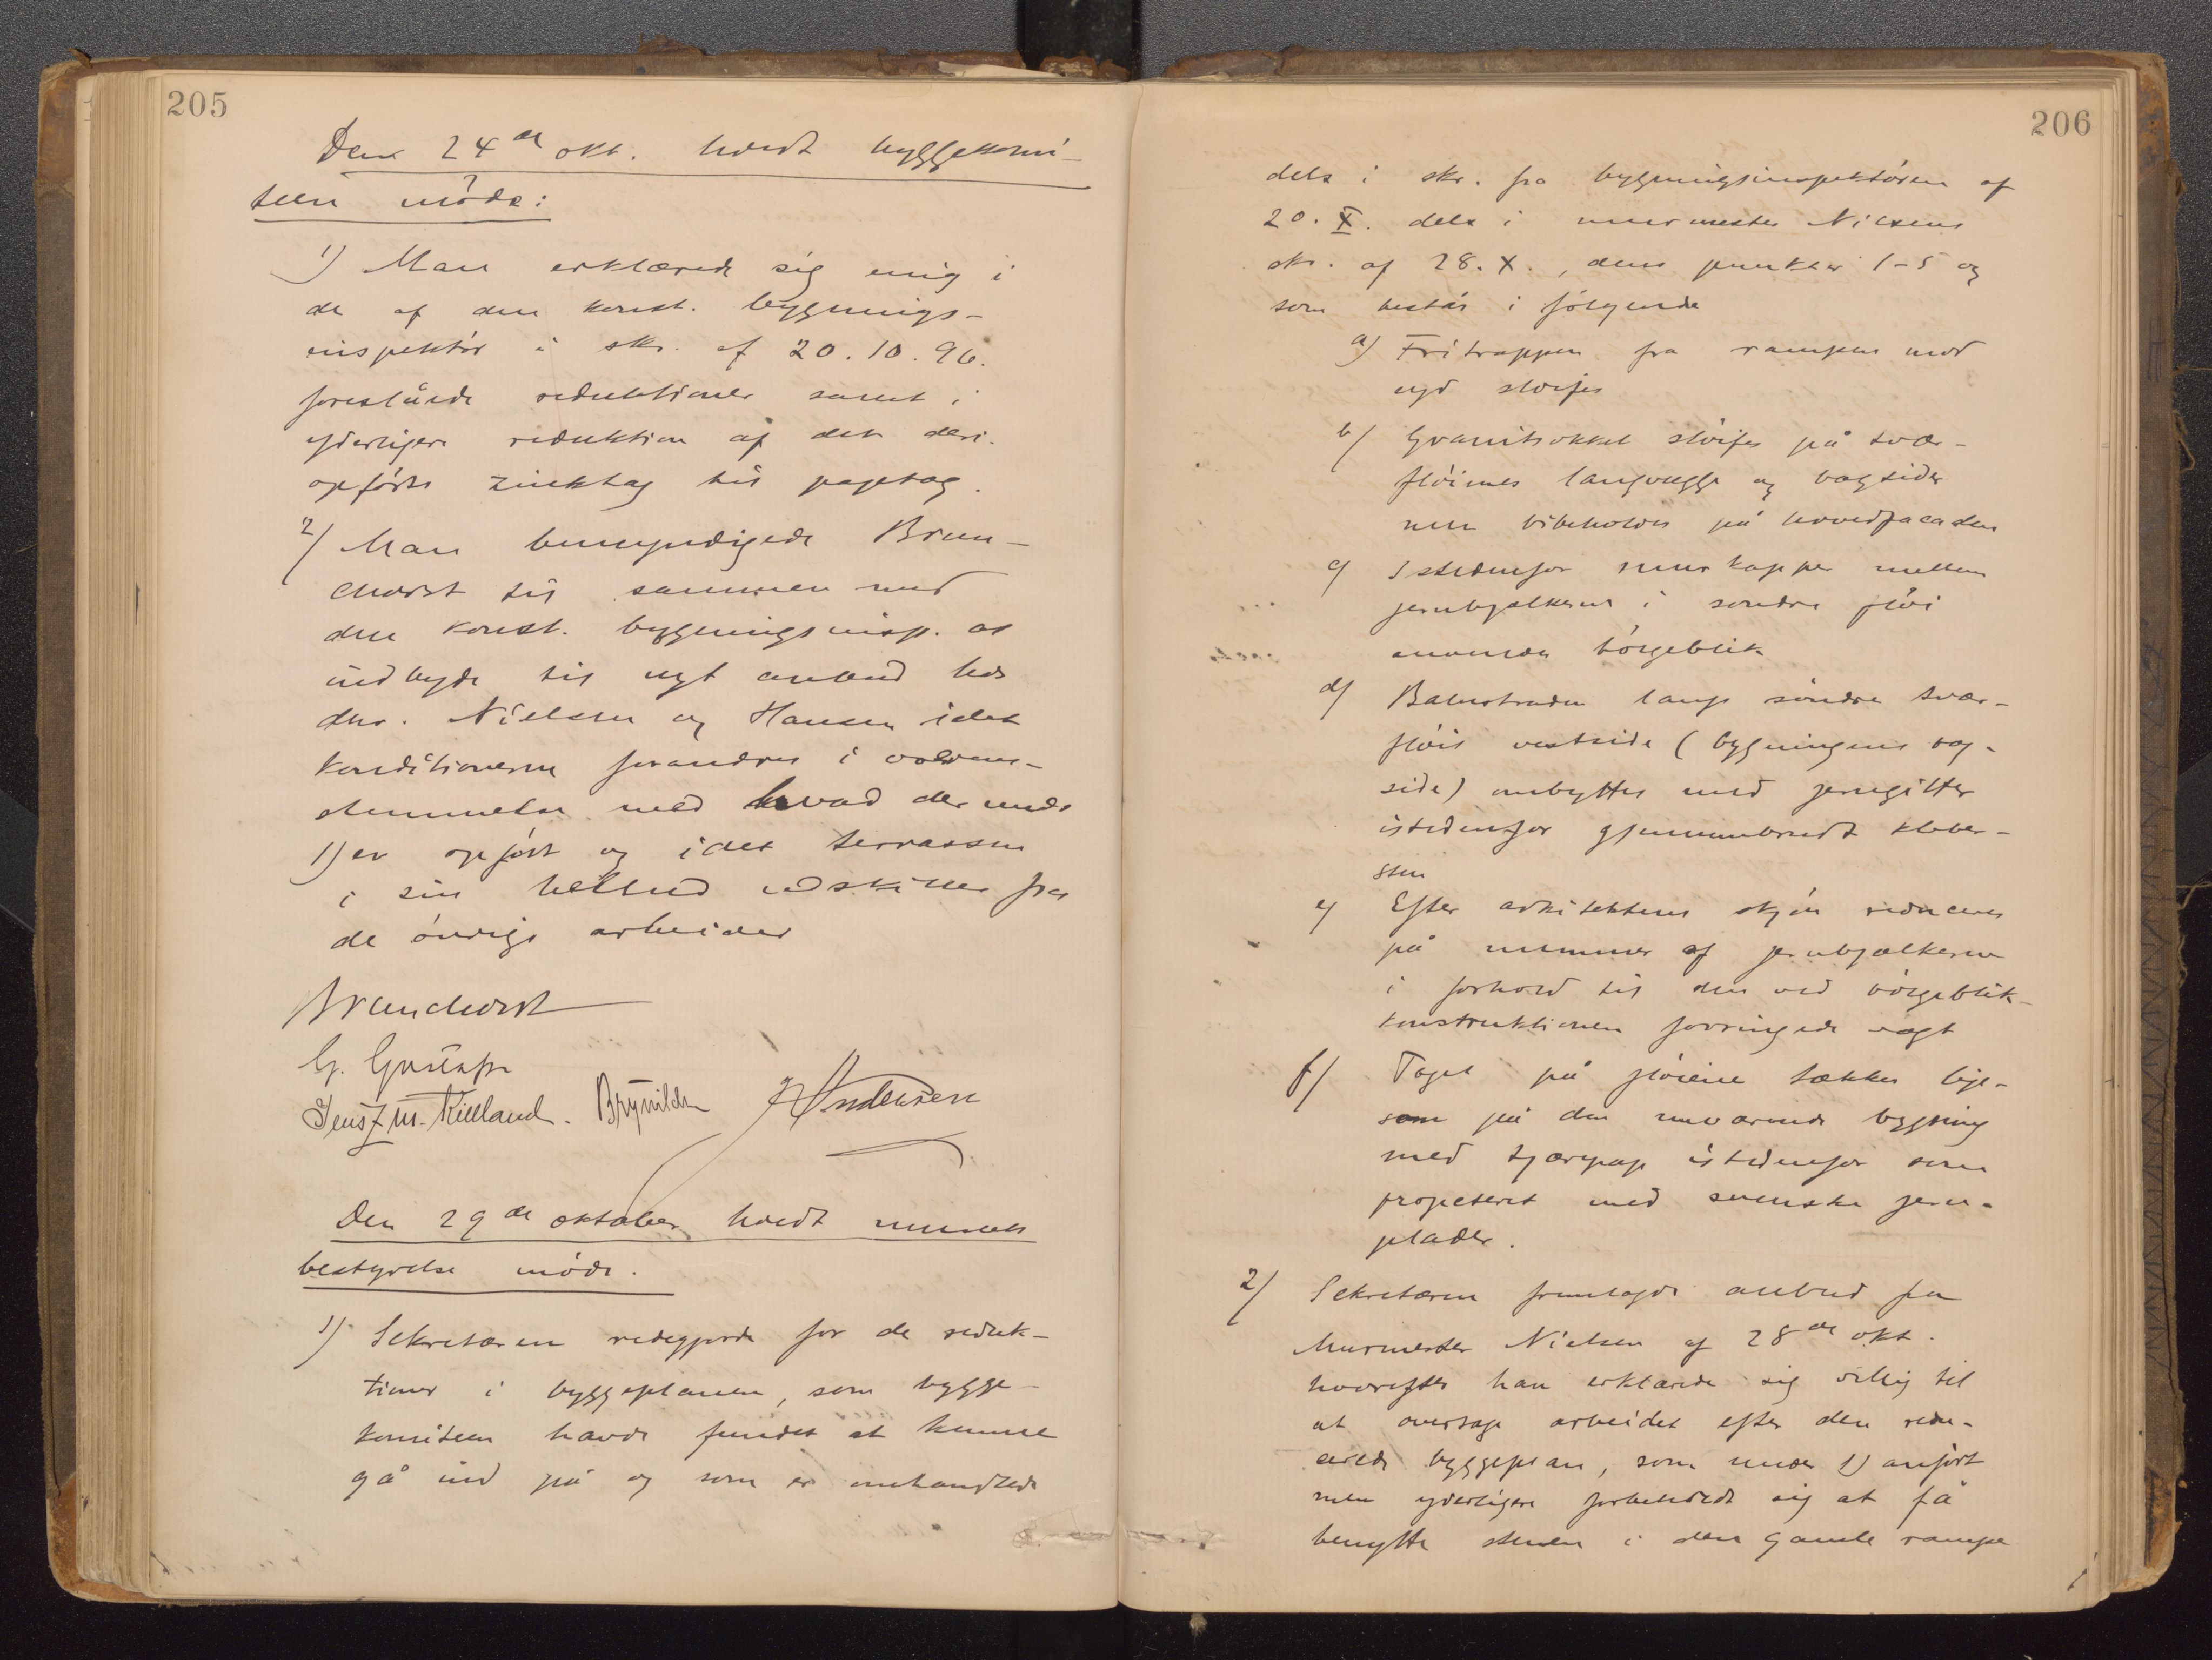 205
Den 24de okt. holdt byggekomi-
teen möde:
1) Man erklærede sig enig i
de af den konst. bygnings-
inspektör i skr. af 20.10.96.
foreslåede reduktioner samt i
yderligere reduktion af det deri
opförte zinktag til paptag.
2) Man bemyndigede Brun-
chorst til sammen med
den konst. bygningsinsp. at
indbyde til nyt anbud hos
dhr. Nielsen og Hansen idet
konditionerne forandres i overens-
stemmelse med hvad der under
1) er opfört og idet terrassen
i sin helhed udskilles fra
de övrige arbeider
Brunchorst
G. Grieg
Jens Z. M. Kielland. Brynildsen J Andersen
Den 29de oktober holdt museets
bestyrelse möde.
1) Sekretæren redegjorde for de reduk-
tioner i byggeplanen, som bygge-
komiteen havde fundet at kunne
gå ind på og som er omhandlede
206
dels i skr. fra bygningsinspektören af
20. X. dels i murmester Nilsens
skr. af 28. X., dens punkter 1-5 og
som består i fölgende
a) Fritrappen fra rampen mod
syd slöifes
b) Granitsokkel slöifes på tvær-
flöienes langvægge og bagsider
men bibeholdes på hovedfacaden
c) Istedenfor murkapper mellem
jernbjælkerne i söndre flöi
anvendes bölgeblik
d) Balustraden langs söndre tvær-
flöis vestside (bygningens bag-
side) ombyttes med jerngitter
istedenfor gjennembrudt kleber-
sten
e) Efter arkitektens skjön reduceres
på nummer af jernbjælkerne
i forhold til den ved bölgeblik-
konstruktionen forringede vægt
f) Taget på flöiene tækkes lige-
som på den nuværende bygning
med tjærepap istedenfor som
projekteret med svenske jern-
plader.
2) Sekretæren fremlagde anbud fra
Murmester Nielsen af 28de okt.
hvorefter han erklærede sig villig til
at overtage arbeidet efter den redu-
cerede byggeplan, som under 1) anfört
men yderligere forbeholdt sig at få
benytte stenen i den gamle rampe